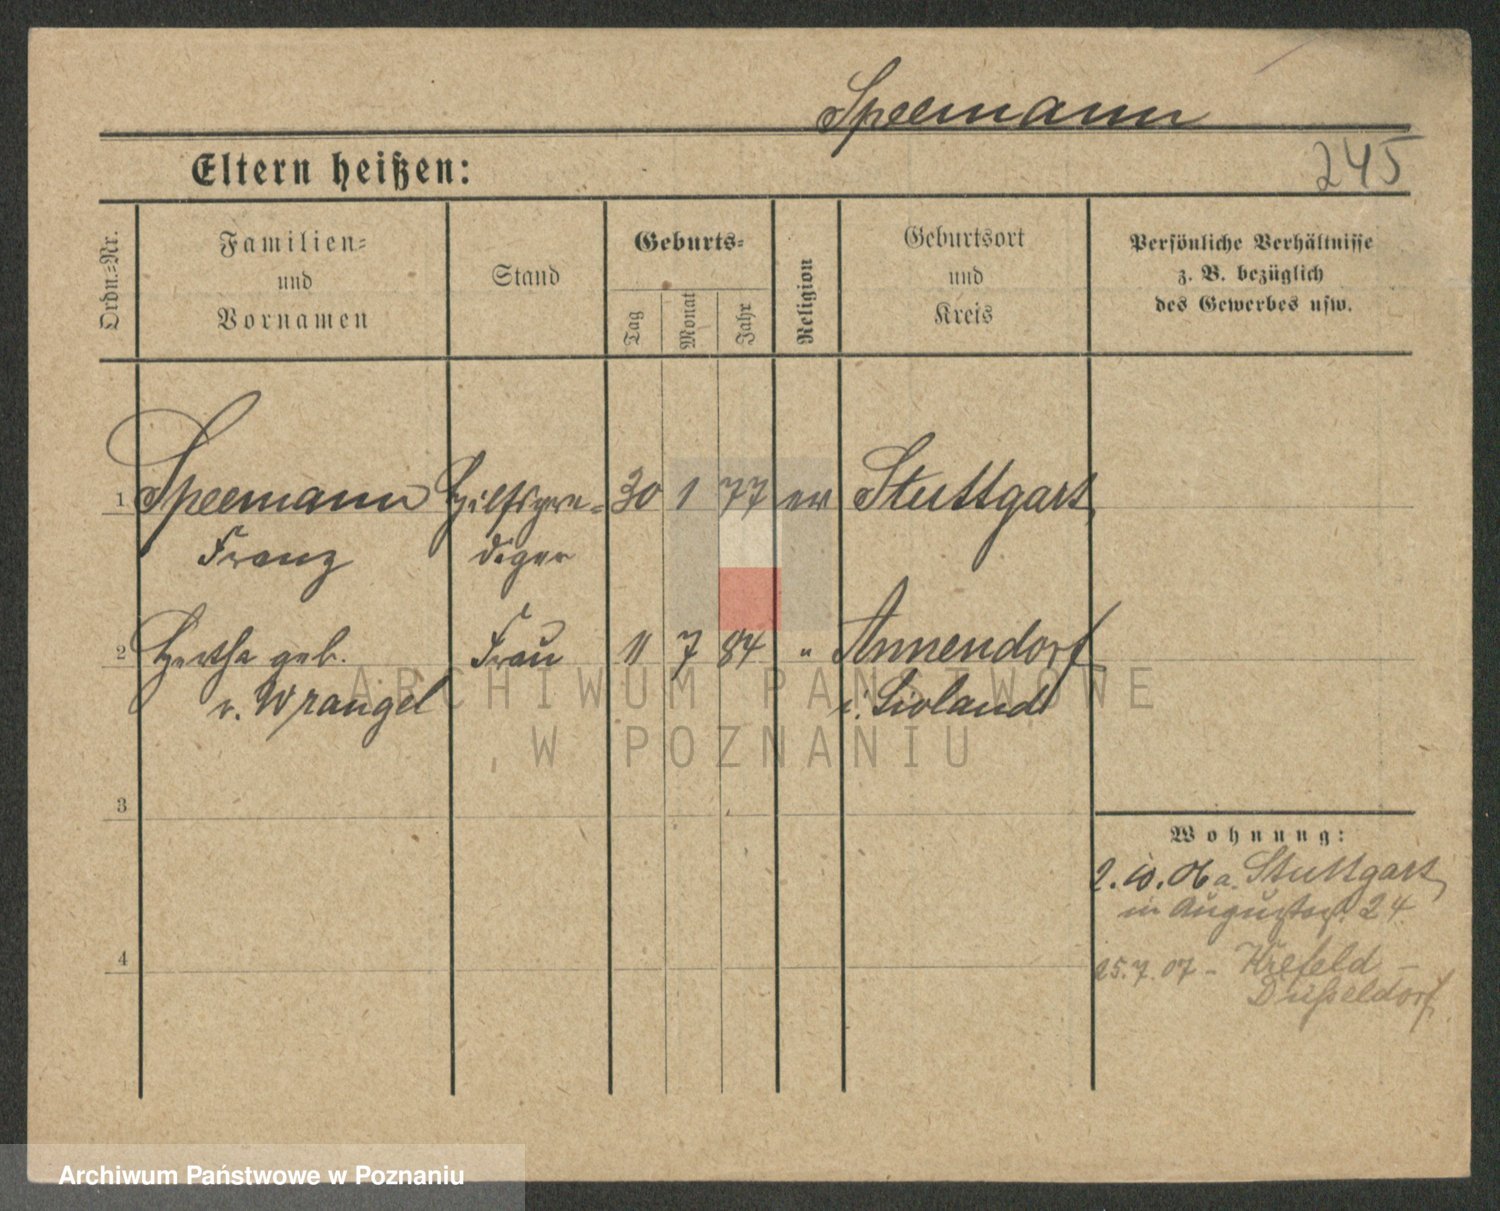 Speemann
245
Eltern heißen:
Ordn.=Nr.
Familien=
und
Vornamen
Stand
Geburts=
Tag
Monat
Jahr
Religion
Geburtsort
und
Kreis
Persönliche Verhältnisse
z. B. bezüglich
des Gewerbes usw.
1 Speemann Hilfspre= 30 1 77 ev Stuttgart
Franz diger
2 Hertha geb. Frau 11 7 84 " Annendorf
v. Wrangel i. Livland
3
4
Wohnung:
2.10.06 a. Stuttgart
in Augustastr. 24
25.7.07 - Krefeld -
Düsseldorf
ARCHIWUM PAŃSTWOWE
W POZNANIU
Archiwum Państwowe w Poznaniu